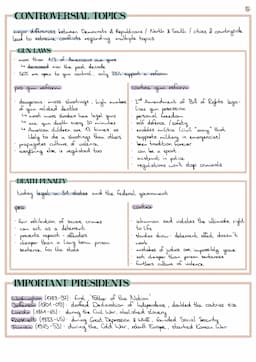 CONTROVERSIAL TOPICS
major differences between Democrats & Republicans / North & South / cities & countryside
lead to extreme conflicts regarding multiple topics
GUN LAWS
more than 40% of Americans own guns
decreased over the past decade
are open to gun control, only support a reform
pro gun reform
contra gun reform
dangerous: more shootings, high number
of gun related deaths
most mass murders have legal guns
one gun death every 30 minutes
American children are times as
likely to die in shootings than others
propagates culture of violence
everything else is regulated too
2nd Amendment of Bill of Rights legal-
ises gun possession
personal freedom
self defense / safety
enables militia (civil "army" that
supports military in emergencies)
been tradition forever
can be a sport
existent in police
regulations won't stop criminals
DEATH PENALTY
today legal in states and the federal government
pro
contra
fair retribution of severe crimes
can act as a deterrent
prevents repeat offenders
cheaper than a long term prison
sentence for the state
inhuman and violates the ultimate right
to life
studies show: deterrent effect doesn't
work
mistakes of justice are impossibly gone
not cheaper than prison sentences
furthers culture of violence
IMPORTANT PRESIDENTS
Washington (1789-97): first, "Father of the Nation"
Jefferson (1801-09): drafted Declaration of Independence, doubled the countries size
Lincoln (1861-65): during the Civil War, abolished slavery
Roosevelt (1933-45): during Great Depression & WWII, founded Social Security
Truman (1945-53): during the Cold War, rebuilt Europe, started Korean War